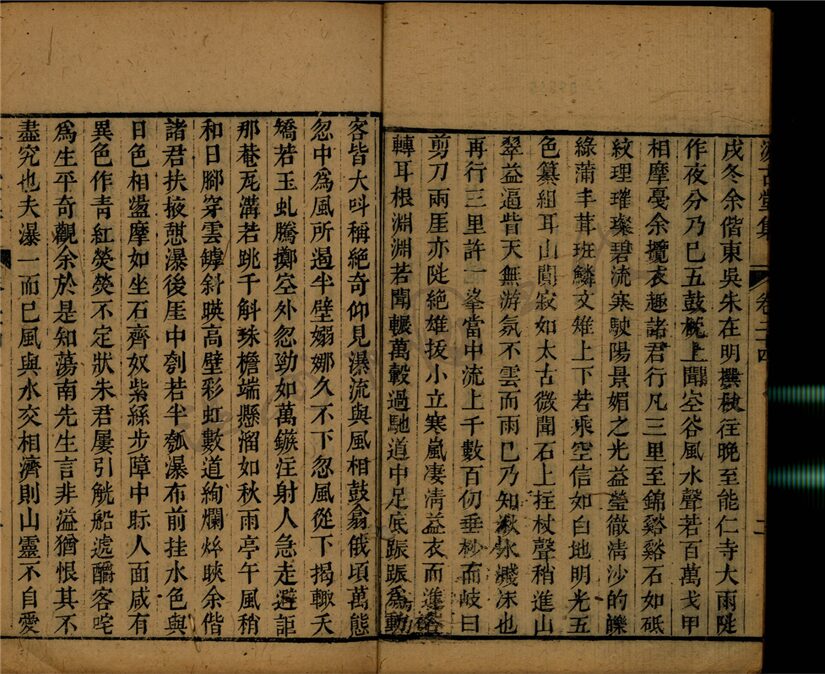 戌冬余偕東吳朱在明撰杖往晚至能仁寺大雨陡
作夜分乃已五鼓枕上聞空谷風水聲若百萬戈甲
相摩戞余攬衣趣諸君行凡三里至錦谿谿石如砥
紋理璀璨碧流寒駛陽景媚之光益瑩徹清沙的皪
綠蒲丰茸班鱗文雉上下若乘空信如白地明光五
色纂組耳山閴寂如太古微聞石上拄杖聲稍進山
翠益逼眥天無游氛不雲而雨已乃知漱氷濺沫也
再行三里許一峯當中流上千數百仞垂杪而岐曰
剪刀兩厓亦陡絶雄拔小立寒嵐凄清益衣而進
轉耳根淵淵若聞輾萬轂過馳道中足底蹶蹶爲動
客皆大呌稱絶奇仰見瀑流與風相鼓翕俄頃萬態
忽中爲風所遏半壁嫋娜久不下忽風從下揭輙夭
矯若玉虬騰擲空外忽勁如萬鏃注射人急走避詎
那菴瓦溝若跳千斛珠檐端懸溜如秋雨亭午風稍
和日腳穿雲罅斜暎高壁彩虹數道絢爛烨暎余偕
諸君扶掖憇瀑後厓中刳若半瓠瀑布前挂水色與
日色相盪摩如坐石齊奴紫絲步障中眎人面咸有
異色作青紅熒熒不定狀朱君屢引觥船遽酹客咤
爲生平奇觀余於是知蕩南先生言非溢猶恨其不
盡究也夫瀑一而已風與水交相濟則山靈不自愛